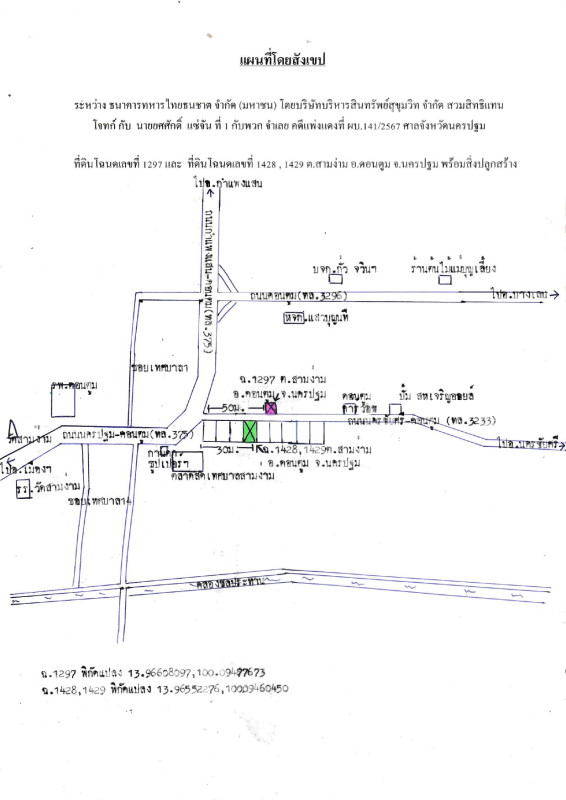 แผนที่โดยสังเขป
ระหว่าง ธนาคารทหารไทยธนชาต จำกัด (มหาชน) โดยบริษัทบริหารสินทรัพย์สุขุมวิท จำกัด สวมสิทธิแทน
โจทก์ กับ นายยศศักดิ์ แซ่จัน ที่ 1 กับพวก จำเลย คดีแพ่งแดงที่ ผบ.141/2567 ศาลจังหวัดนครปฐม
ที่ดินโฉนดเลขที่ 1297 และ ที่ดินโฉนดเลขที่ 1428 , 1429 ต.สามง่าม อ.ดอนตูม จ.นครปฐม พร้อมสิ่งปลูกสร้าง
ไปอ.กำแพงแสน
ถนนกำแพงแสน-ดอนตูม(ทล.375)
บจก.กั่ว จวินฯ
ร้านต้นไม้แม่บุญเลี้ยง
ถนนดอนตูม(ทล.3296)
ไปอ.บางเลน
หจก.แสวบุญที
ซอยเทศบาล1
ฉ.1297 ต.สามงาม
อ.ดอนตูม จ.นครปฐม
รพ.ดอนตูม
50ม.
ดอนตูม
คาร์ร้อย
ปั๊ม สหเจริญออยล์
วัดสามงาม
ถนนนครปฐม-ดอนตูม(ทล.375)
ถนนนครชัยศรี-ดอนตูม (ทล.3233)
ไปอ.นครชัยศรี
30ม.
ฉ.1428,1429ต.สามงาม
อ.ดอนตูม จ.นครปฐม
ซุปเปอร์ฯ
ตลาดสดเทศบาลสามงาม
ไปอ.เมืองฯ
รร.วัดสามงาม
ซอยเทศบาล14
คลองชลประทาน
ฉ.1297 พิกัดแปลง 13.96608097,100.09477673
ฉ.1428,1429 พิกัดแปลง 13.96552276,100.09460450